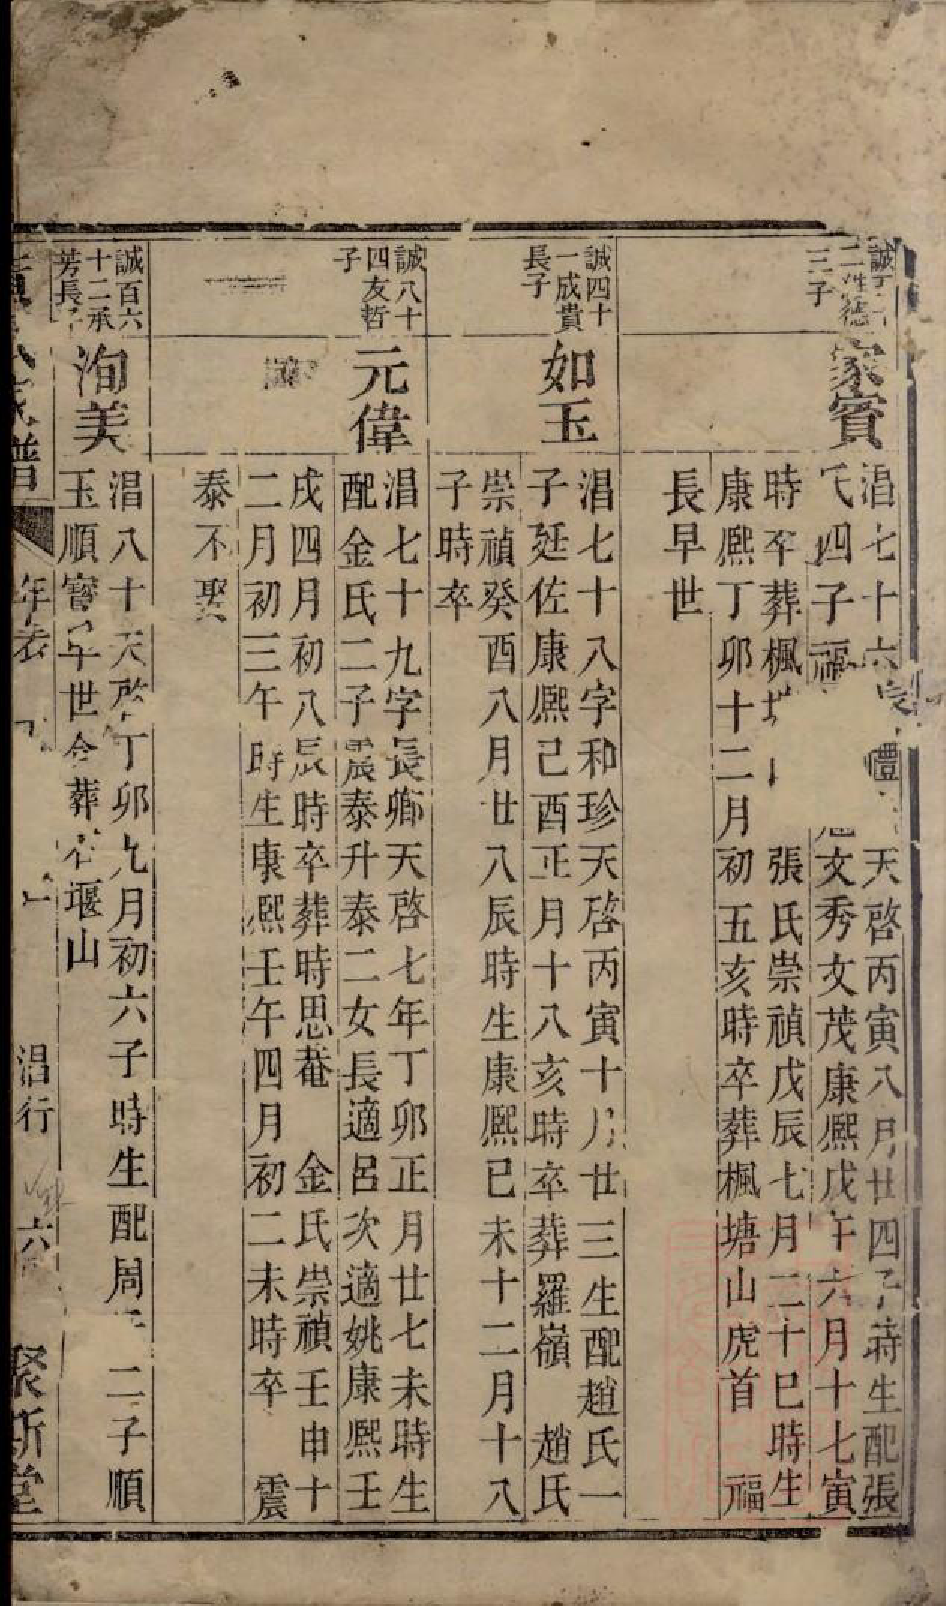 三子
家賓
淐七十六
天啓丙寅八月廿四子時生配張
氏四子福
文秀文茂康熙戊午六月十七寅
時卒葬楓
張氏崇禎戊辰七月二十巳時生
康熙丁卯十二月初五亥時卒葬楓塘山虎首 福
長早世
誠四十
一成貴
長子
如玉
淐七十八字和珍天啓丙寅十月廿三生配趙氏一
子廷佐康熙己酉正月十八亥時卒葬羅嶺 趙氏
崇禎癸酉八月廿八辰時生康熙已未十二月十八
子時卒
誠八十
四友哲
子
元偉
淐七十九字長鄉天啓七年丁卯正月廿七未時生
配金氏二子震泰升泰二女長適呂次適姚康熙壬
戌四月初八辰時卒葬時思菴 金氏崇禎壬申十
二月初三午時生康熙壬午四月初二未時卒 震
泰不娶
誠百六
十二承
芳長子
洵美
淐八十天啓丁卯九月初六子時生配周 二子順
玉順寶早世合葬 堰山
氏譜
年表
淐行
六
聚斯堂